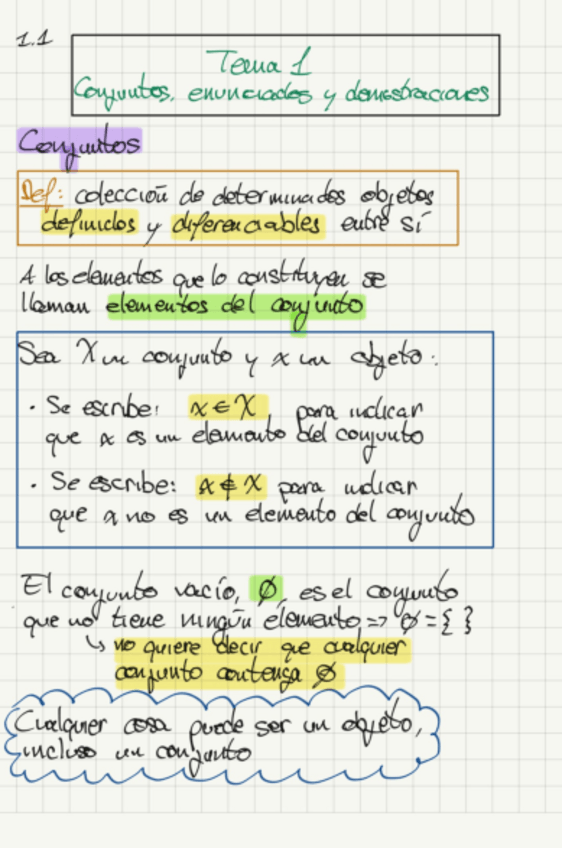 1.1
Tema 1
Conjuntos, enunciados y demostraciones
Conjuntos
Def: colección de determinados objetos
definidos y diferenciables entre sí
A los elementos que lo constituyen se
llaman elementos del conjunto
Sea X un conjunto y x un objeto:
· Se escribe: x ∈ X, para indicar
que x es un elemento del conjunto
· Se escribe: x ∉ X para indicar
que x no es un elemento del conjunto
El conjunto vacío, ∅, es el conjunto
que no tiene ningún elemento => ∅ = { }
↳ no quiere decir que cualquier
conjunto contenga ∅
Cualquier cosa puede ser un objeto,
incluso un conjunto